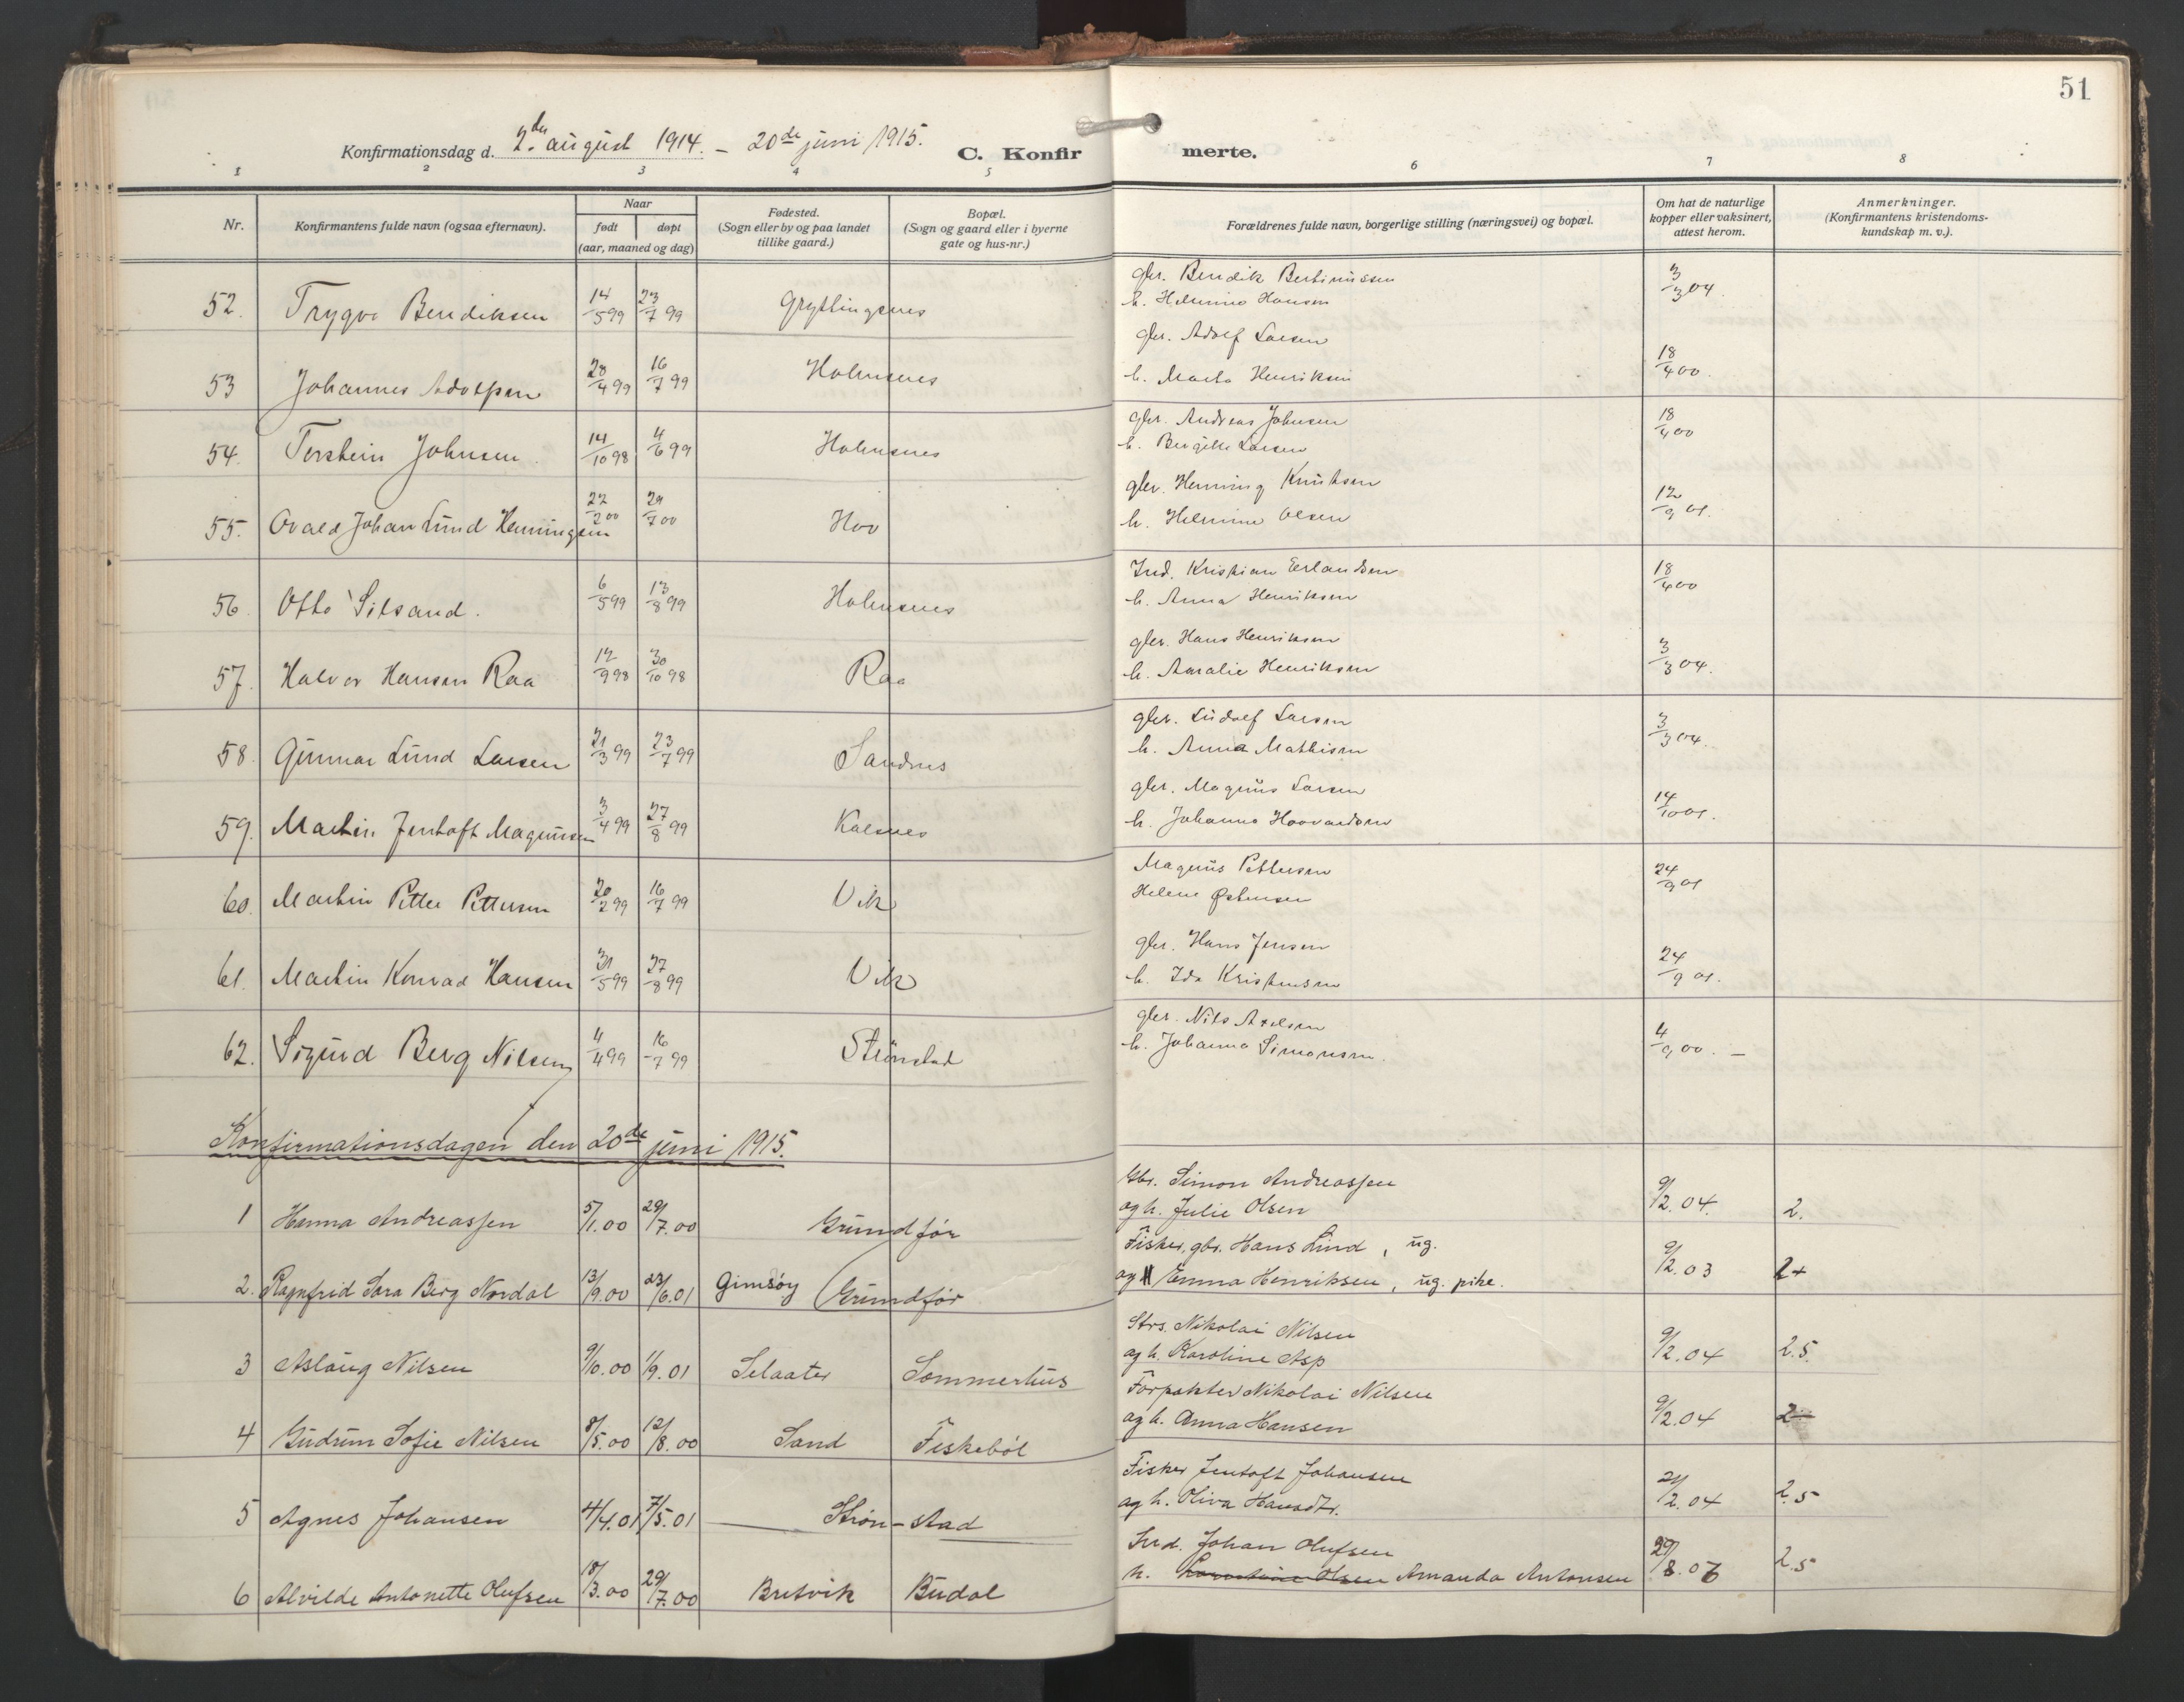 51
Konfirmationsdag d. 2den august 1914. – 20de juni 1915.
C. Konfirmerte.
1 2 3 4 5 6 7 8
Nr. Konfirmantens fulde navn (ogsaa efternavn). Naar født døpt (aar, maaned og dag) Fødested. (Sogn eller by og paa landet tillike gaard.) Bopæl. (Sogn og gaard eller i byerne gate og hus-nr.) Forældrenes fulde navn, borgerlige stilling (næringsvei) og bopæl. Om hat de naturlige kopper eller vaksinert, attest herom. Anmerkninger. (Konfirmantens kristendoms-kundskap m. v.).
52. Trygve Bendiksen 14/5 99 23/7 99 Gryttingsnes gbr. Bendik Bertinussen 3/3 04.
h. Helmine Hansen
53 Johannes Adolfsen 28/4 99 16/7 99 Holmsnes gbr. Adolf Larsen 18/4 00.
h. Marta Henriksen
54. Torstein Johnsen 14/10 98 4/6 99 Holmsnes gbr. Andreas Johnsen 18/4 00
h. Bergitte Larsen
55. Ovald Johan Lund Henningsen 22/2 00 29/7 00 Hov gbr. Henning Knutsen 12/9 01.
h. Helmine Olsen
56. Otto Silsand. 6/5 99 13/8 99 Holmsnes Ind. Kristian Erlandsen 18/4 00
h. Anna Henriksen
57. Halvor Hansen Raa 12/9 98 30/10 98 Raa gbr. Hans Henriksen 3/3 04.
h. Amalie Henriksen
58. Gunnar Lund Larsen 21/3 99 23/7 99 Sandnes gbr. Ludolf Larsen 3/3 04.
h. Anna Mathisen
59. Martin Jentoft Magnussen 3/4 99 27/8 99 Kalsnes gbr. Magnus Larsen 14/10 01.
h. Johanna Hoovardsen
60. Martin Petter Pettersen 20/2 99 16/7 99 Vik Magnus Pettersen 24/9 01
Helene Østensen
61. Martin Konrad Hansen 31/5 99 27/8 99 Vik gbr. Hans Jensen 24/9 01.
h. Ida Kristensen
62. Sigurd Berg Nilsen 4/4 99 16/7 99 Strønstad gbr. Nils Axelsen 4/9 00. –
h. Johanna Simonsen.
Konfirmationsdagen den 20de juni 1915.
1 Hanna Andreassen 5/1.00 29/7.00 Grundfør Gbr. Simon Andreassen 9/2.04. 2.
og h. Julie Olsen
2. Ragnfrid Sara Berg Nordal 13/9.00 23/6.01 Gimsøy Grundfør Fisker, gbr. Hans Lind, ug. 9/2.03 2+
og Emma Henriksen, ug. pike.
3 Aslaug Nilsen 9/10.00 1/9.01 Selaater Sommerhus Strs. Nikolai Nilsen 9/2.04 2.5.
og h. Karoline Asp
4 Gudrun Sofie Nilsen 8/5.00 12/8.00 Sand Fiskebøl Forpakter Nikolai Nilsen 9/2.04 2
og h. Anna Hansen
5 Agnes Johansen 4/4.01 7/5.01 Strøn-stad Fisker Jentoft Johansen 2/2.04 2.5
og h. Oliva Hansdtr.
6 Alvilde Antonette Olufsen 18/3.00 29/7.00 Bretvik Budal Ind. Johan Olufsen 29/8.06 2.5
h. Amanda Antonsen